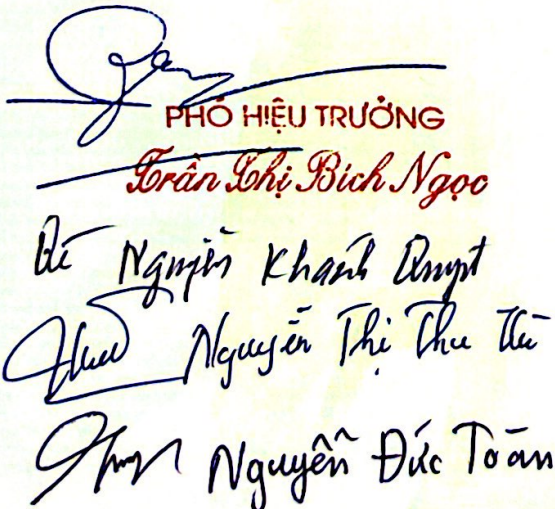 PHÓ HIỆU TRƯỞNG
Trần Thị Bích Ngọc
Nguyễn Khánh
Nguyễn Thị Thu
Nguyễn Đức Toàn